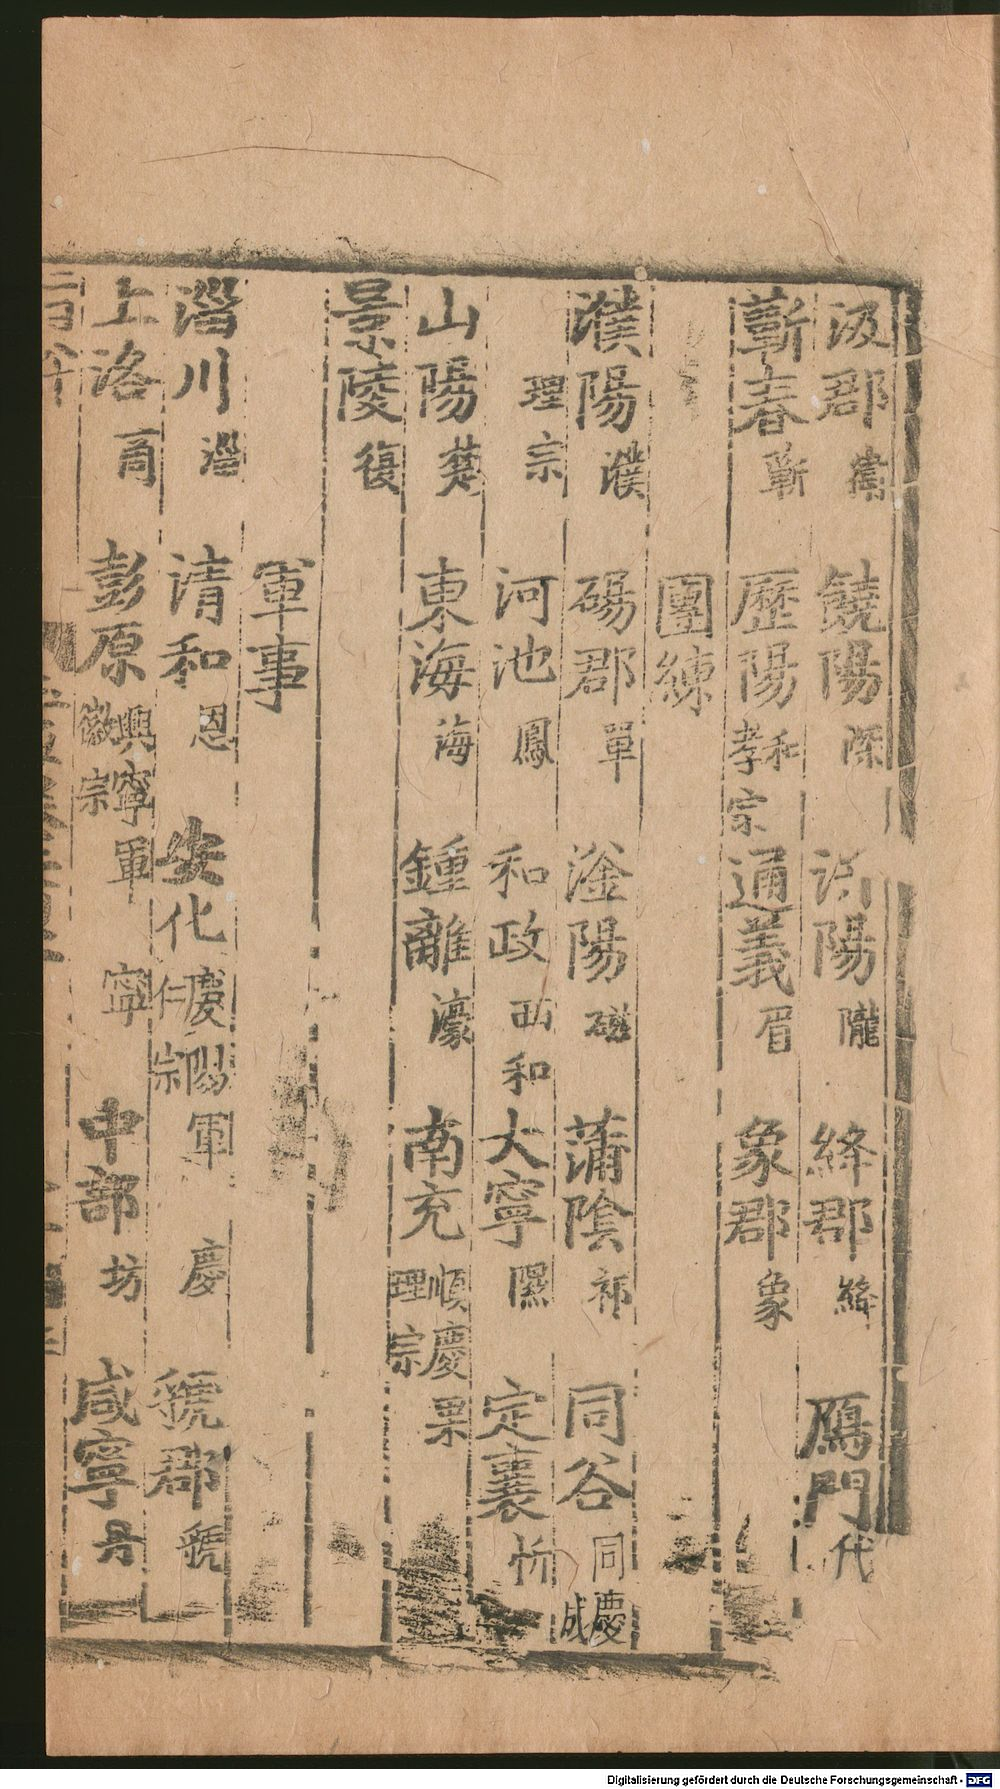 汲郡 衛 饒陽 深 汧陽 隴 絳郡 絳 鴈門 代
蘄春 蘄 歷陽 和 孝宗 通義 眉 象郡 象
團練
濮陽 濮 碭郡 單 滏陽 磁 蒲陰 祁 同谷 同慶 成
理宗 河池 鳳 和政 西和 大寧 隰 定襄 忻
山陽 楚 東海 海 鍾離 濠 南充 順慶 理宗 果
景陵 復
軍事
淄川 淄 清和 恩 安化 慶陽軍 仁宗 慶 虢郡 虢
上洛 商 彭原 興寧軍 徽宗 寧 中部 坊 咸寧 丹
Digitalisierung gefördert durch die Deutsche Forschungsgemeinschaft - DFG